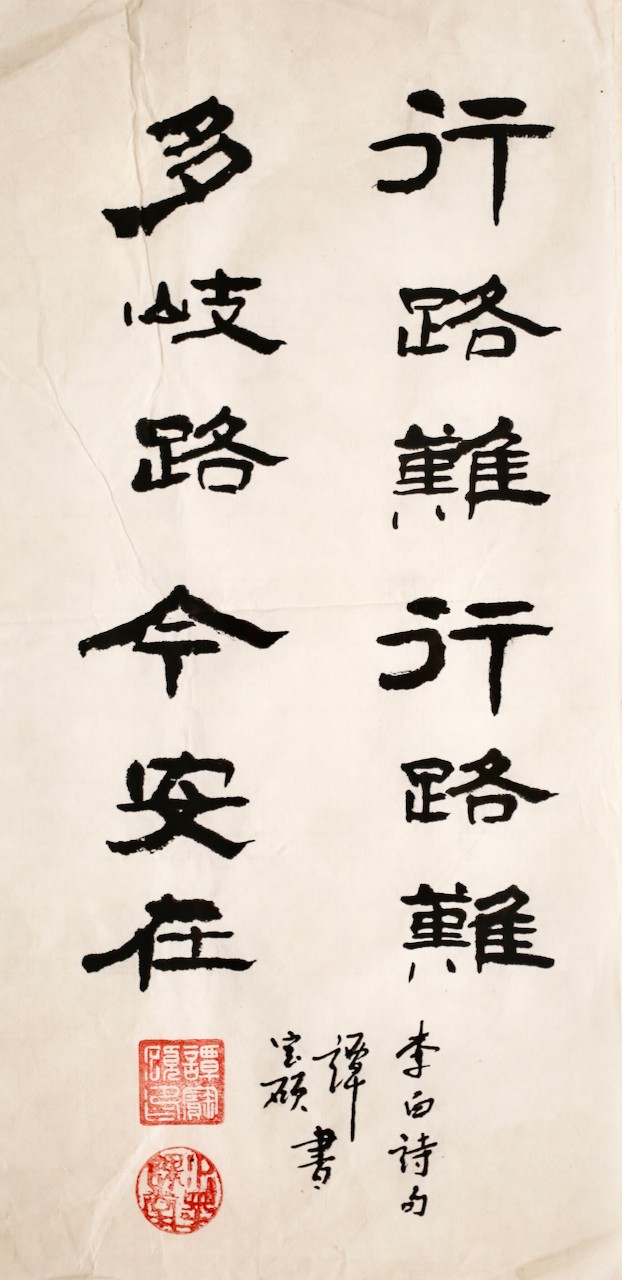 行路難行路難
多岐路今安在
李白詩句
譚宝硕書